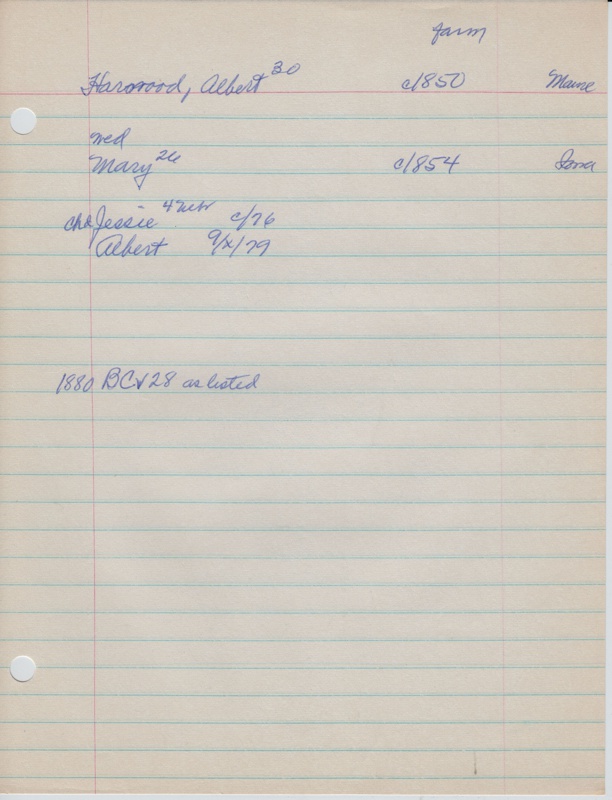 farm
Harwood, Albert 30 c/1850 Maine
wed
Mary 26 c/1854 Iowa
chd Jessie 4 c/76
Albert 9/x/79
1880 BCV 28 as listed